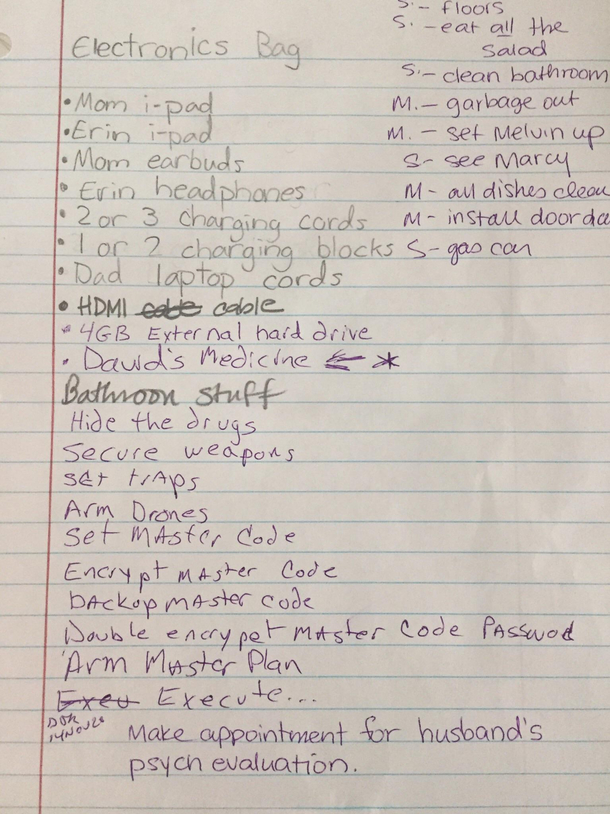 S. - floors
S. - eat all the
salad
S. - clean bathroom
M. - garbage out
M. - set Melvin up
S - see Marcy
M - all dishes clean
M - install door da
S - gas can
Electronics Bag
• Mom i-pad
• Erin i-pad
• Mom earbuds
• Erin headphones
• 2 or 3 charging cords
• 1 or 2 charging blocks
• Dad laptop cords
• HDMI cable cable
• 4GB External hard drive
• David's Medicine ← *
Bathroon stuff
Hide the drugs
Secure weapons
set trAps
Arm Drones
Set MAster Code
Encrypt mAster Code
bAckup mAster code
Double encrypet mAster Code PAsswod
Arm MAster Plan
Exeu Execute...
14NOV20
Make appointment for husband's
psych evaluation.